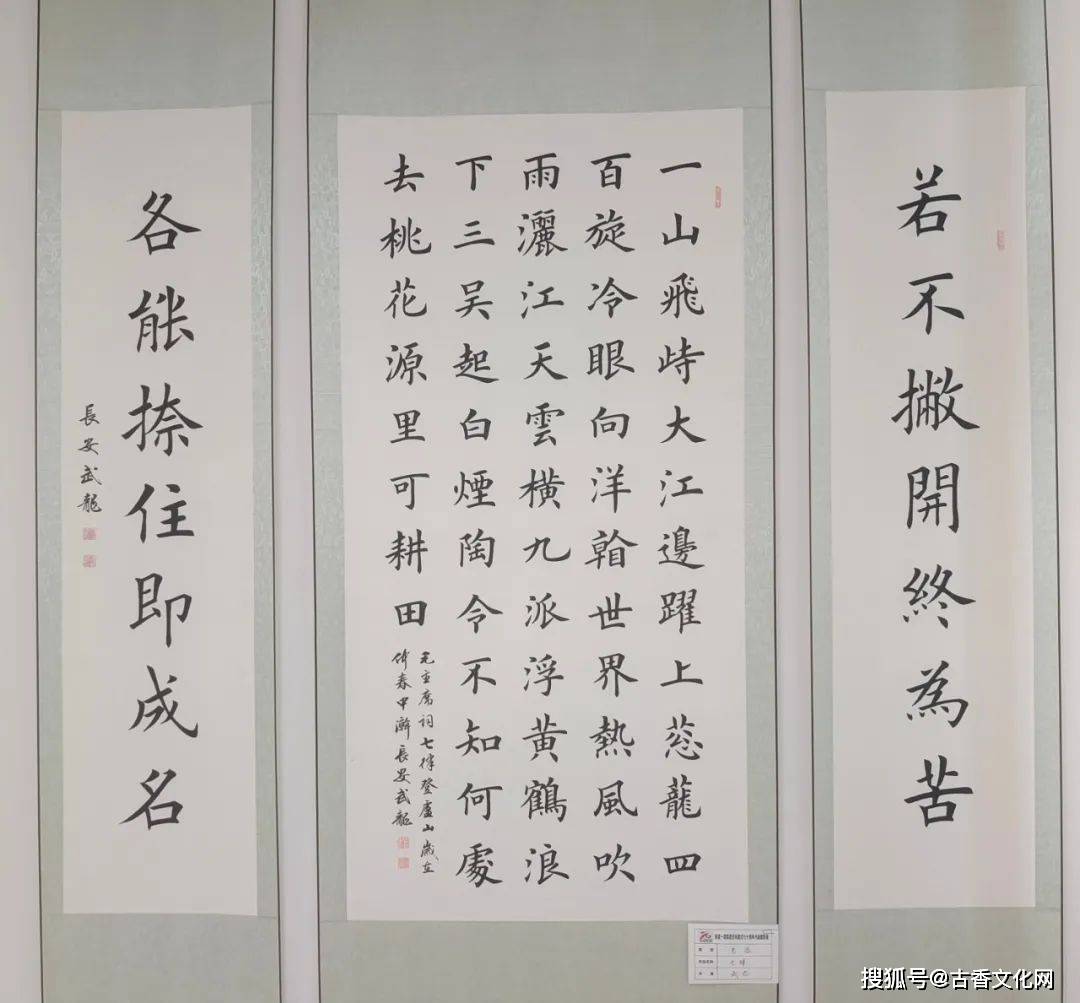 若不撇開終為苦
一山飛峙大江邊躍上葱蘢四
百旋冷眼向洋看世界熱風吹
雨灑江天雲橫九派浮黃鶴浪
下三吳起白煙陶令不知何處
去桃花源里可耕田
毛主席詞七律登廬山歲在
春中澣長安武龍
各能捺住即成名
長安武龍
搜狐号@古香文化网